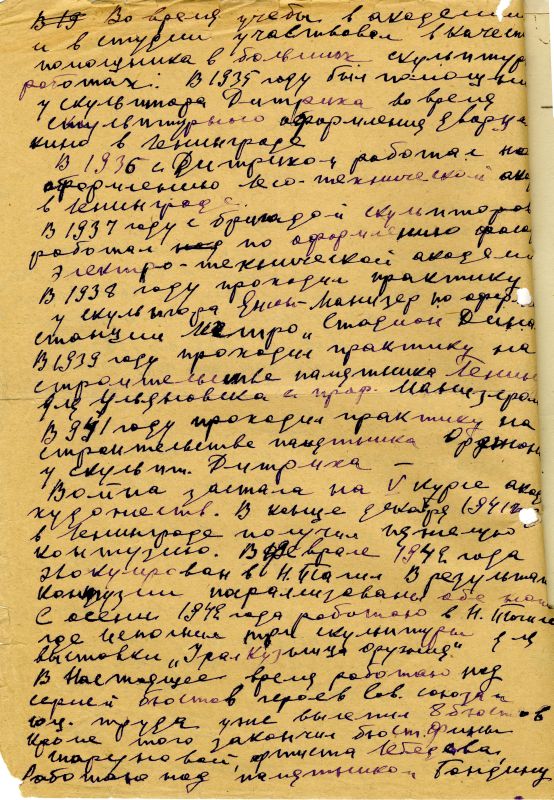 В 19 Во время учебы в академии
и в студии участвовал в качест
помощника в больших скульптур
работах: В 1935 году был помощни
у скульптора Дитриха во время
скульптурного оформления дворца
кино в Ленинграде
В 1936 с Дитрихом работал на
оформлению лесо-технической ака
в Ленинграде.
В 1937 году с бригадой скульпторов
работал по оформлению фаса
Электро-технической академии
В 1938 году проходил практику
у скульптора Янсон-Манизер по оформ
станции Метро „Стадион Дина
В 1939 году проходил практику на
строительстве памятника Ленину
для Ульяновска с проф. Манизером
В 941 году проходил практику на
строительстве памятника Орджони
у скульпт. Дитриха —
Война застала на V курсе акад
художеств. В конце декабря 1941
в Ленинграде получил тяжелую
контузию. В феврале 1942 года
эвокуирован в Н. Тагил В результате
контузии парализованы обе
С осени 1942 года работаю в Н. Тагиле
где исполнил три скульптуры для
выставки „Урал кузница оружия"
В настоящее время работаю над
серией бюстов героев Сов. союза и
соц. труда уже вылепил 8 бюстов
Кроме того закончил бюст
артиста Лебедева.
Работаю над памятником